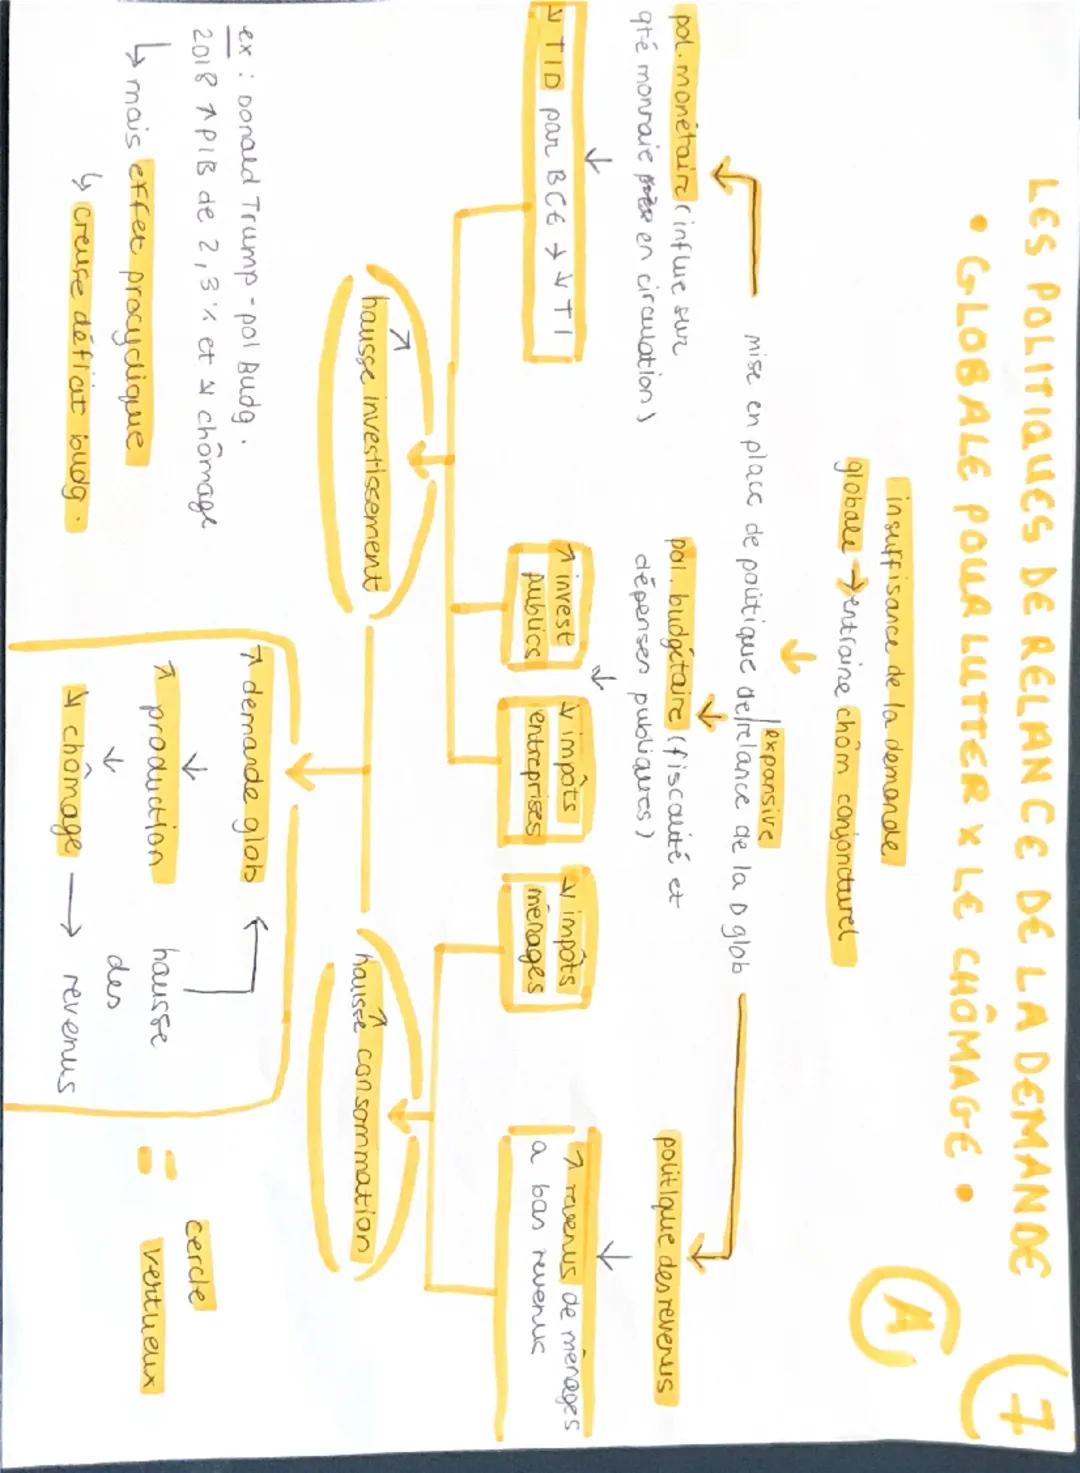 LES POLITIQUES DE RELANCE DE LA DEMANDE
• GLOBALE POUR LUTTER X LE CHÔMAGE •
7
A
insuffisance de la demande
globale → entraine chôm conjoncturel
↓
expansive
mise en place de politique de/relance de la D glob
pol. monétaire (influe sur
qté monnaie en circulation)
pol. budgétaire (fiscalité et
dépenses publiques)
politique des revenus
↓
↘ TID par BCE → ↘ TI
↓
↗ invest
publics
↘ impôts
entreprises
↘ impôts
ménages
↓
↗ revenus de ménages
a bas revenus
↗
hausse investissement
↗
hausse consommation
ex : Donald Trump - pol Budg.
2018 ↗ PIB de 2,3 % et ↘ chômage
↳ mais effet procyclique
↳ creuse déficit budg.
↗ demande glob
↓
↗ production
↓
↘ chômage → revenus
hausse
des
= cercle
vertueux